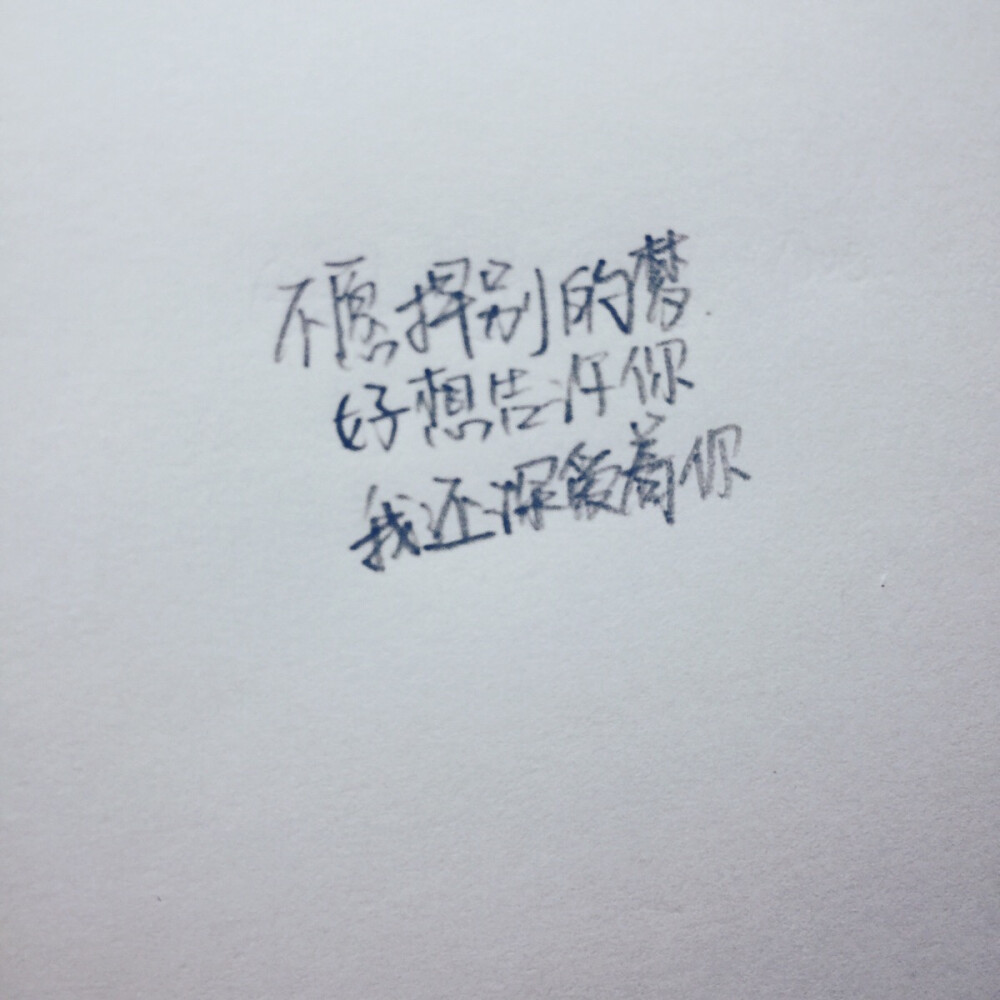 不愿挥别的梦
好想告诉你
我还深爱着你